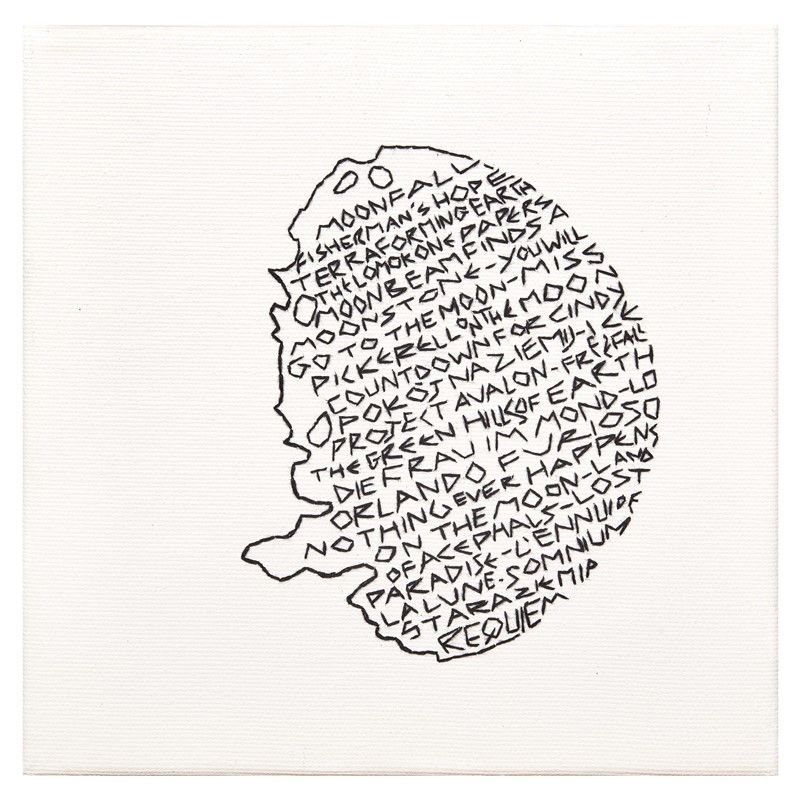 MOONFALL-
FISHERMAN'S HOPE
TERRAFORMING EARTH
THE LOMOKONE PAPERS
MOONBEAM FINDS A
MOONSTONE-YOU WILL
GO TO THE MOON-MISS
PICKERELL ON THE MOON
COUNTDOWN FOR CINDY
POKOJ NA ZIEMI-
PROJECT AVALON-FREEFALL
THE GREEN HILLS OF EARTH
DIE FRAU IM MOND-LO
ORLANDO FURIOSO
NOTHING EVER HAPPENS
ON THE MOON-LAND
OF ACEPHALS-LOST
PARADISE-L'ENNUI OF
LA LUNE-SOMNIUM
STARA ZIEMIA
REQUIEM